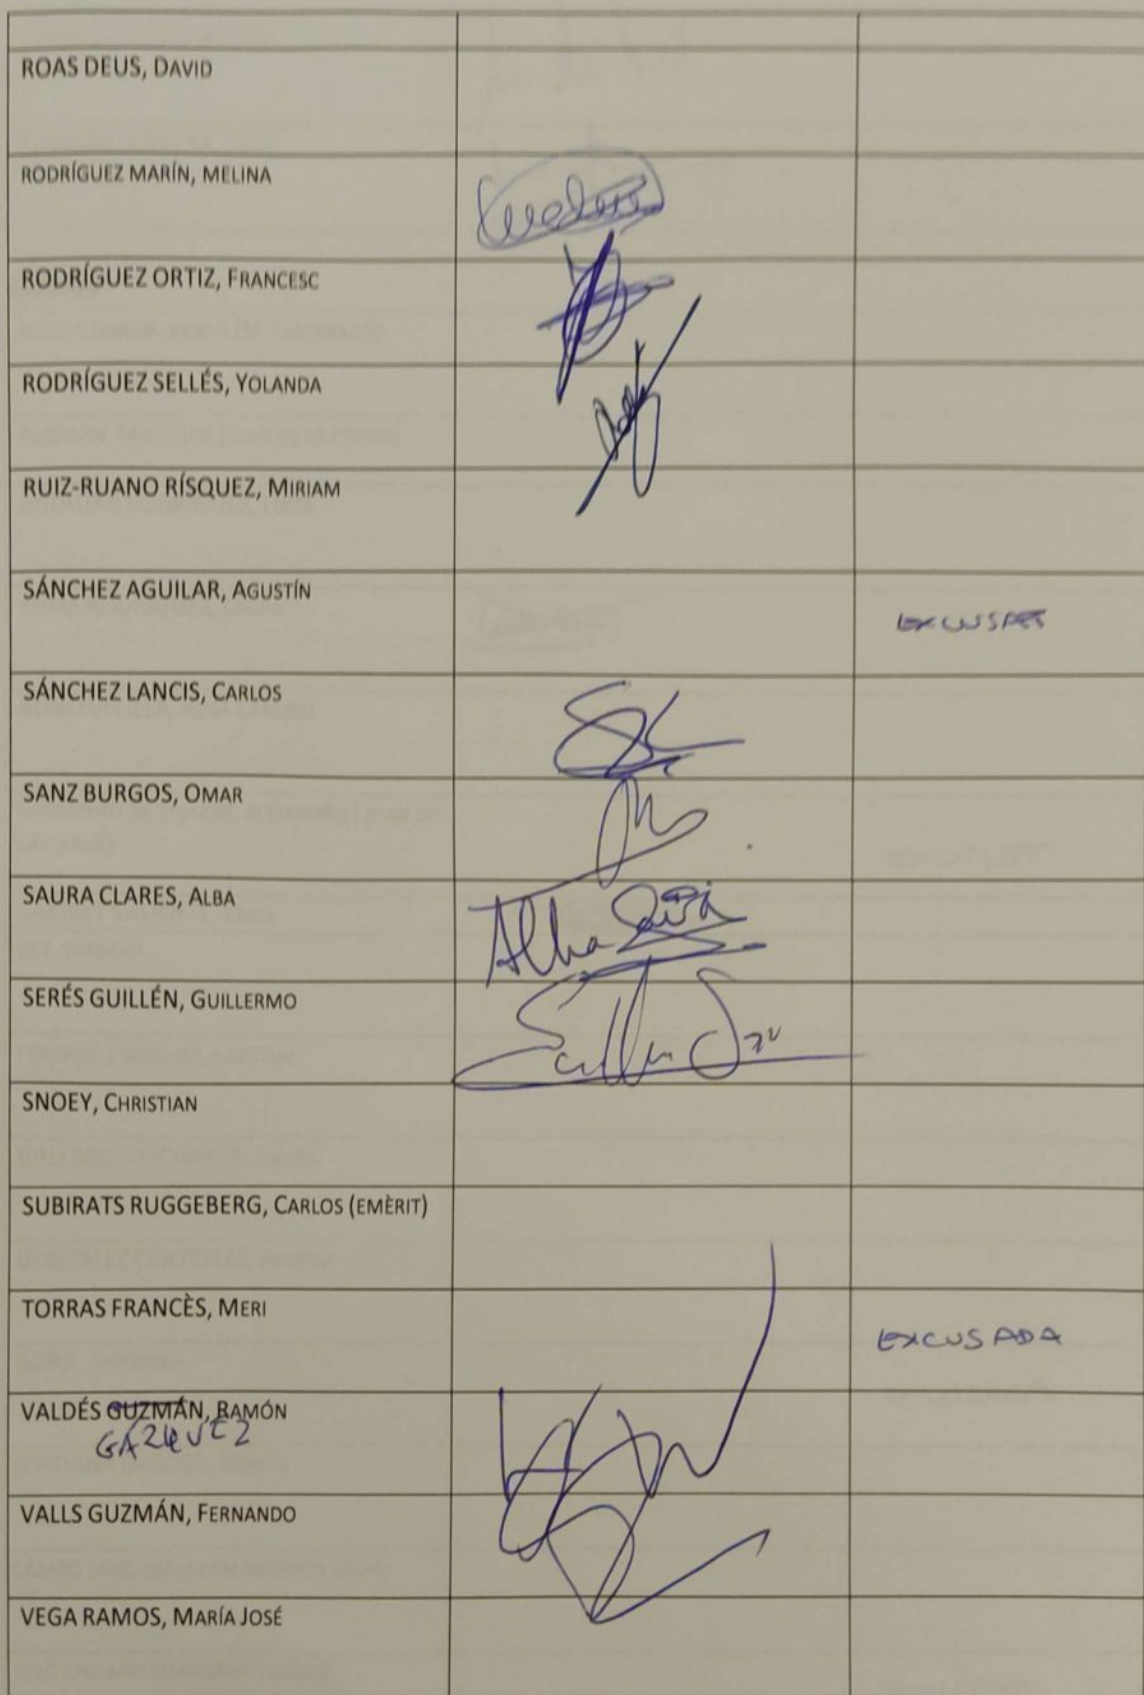 ROAS DEUS, DAVID
RODRÍGUEZ MARÍN, MELINA
RODRÍGUEZ ORTIZ, FRANCESC
RODRÍGUEZ SELLÉS, YOLANDA
RUIZ-RUANO RÍSQUEZ, MIRIAM
SÁNCHEZ AGUILAR, AGUSTÍN
SÁNCHEZ LANCIS, CARLOS
SANZ BURGOS, OMAR
SAURA CLARES, ALBA Alba
SERÉS GUILLÉN, GUILLERMO
SNOEY, CHRISTIAN
SUBIRATS RUGGEBERG, CARLOS (EMÈRIT)
TORRAS FRANCÈS, MERI EXCUSADA
VALDÉS GUZMÁN, RAMÓN
VALLS GUZMÁN, FERNANDO
VEGA RAMOS, MARÍA JOSÉ